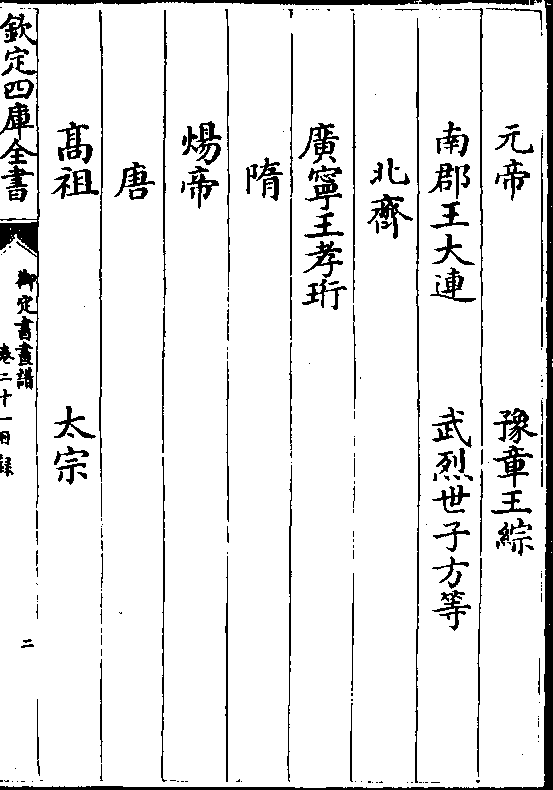 元帝　豫章王綜
南郡王大連　武烈世子方等
北齊
廣寧王孝珩
隋
煬帝
唐
髙祖　太宗
欽定四庫全書
御定書畫譜
卷二十一目録
二